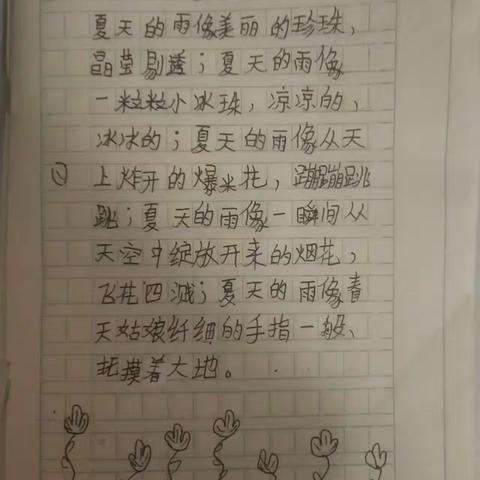 夏天的雨像美丽的珍珠，
晶莹剔透；夏天的雨像
一粒粒小冰珠，凉凉的，
冰冰的；夏天的雨像从天
上炸开的爆米花，蹦蹦跳
跳；夏天的雨像一瞬间从
天空中绽放开来的烟花，
飞花四溅；夏天的雨像春
天姑娘纤细的手指一般、
抚摸着大地。